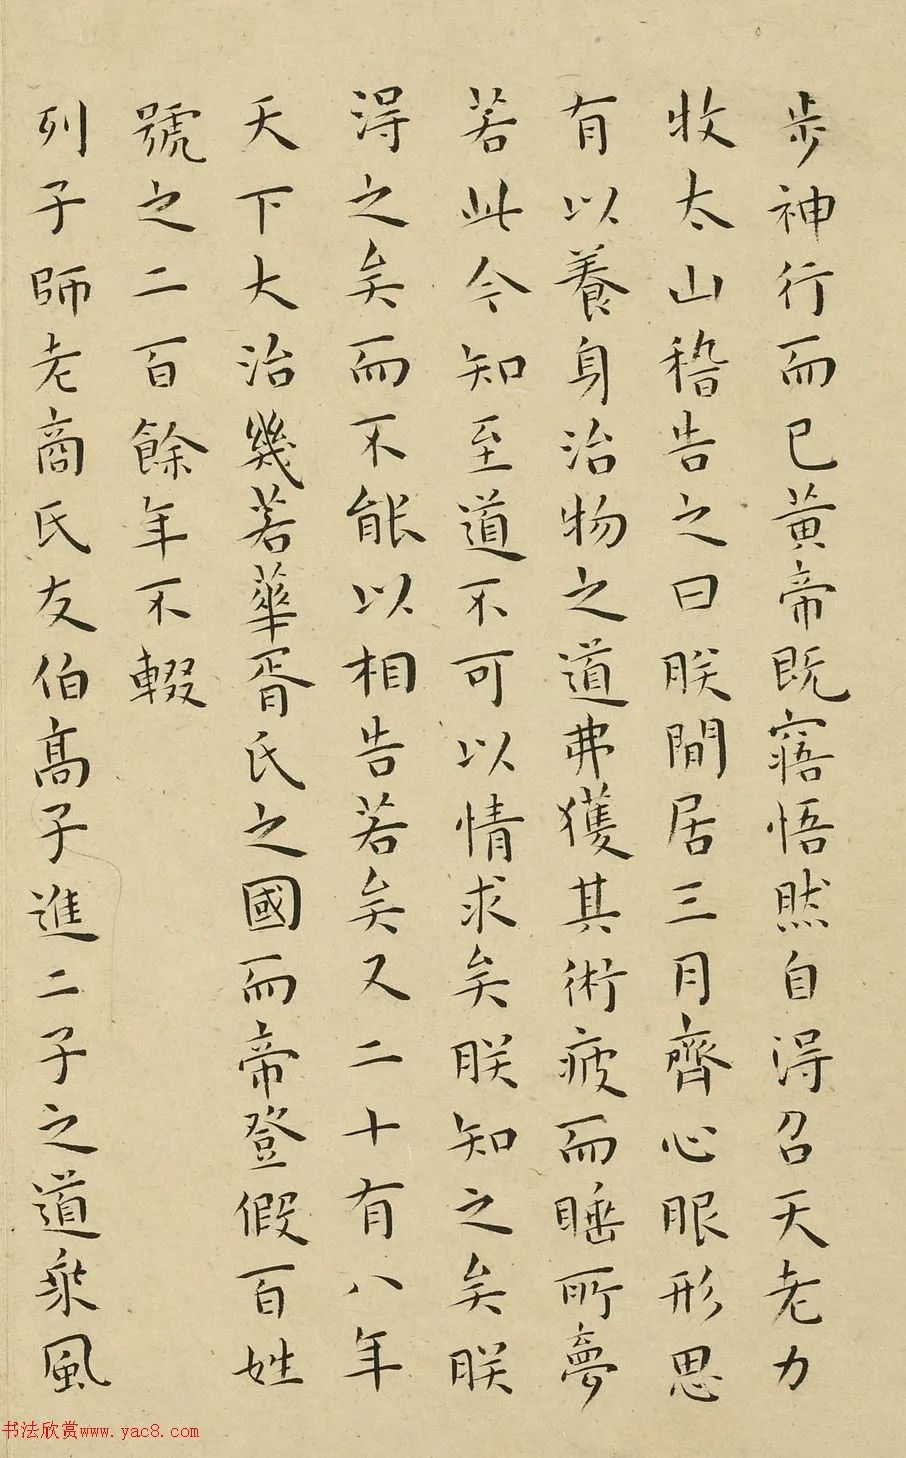 步神行而已黃帝既寤悟然自得召天老力
牧太山稽告之曰朕閒居三月齊心服形思
有以養身治物之道弗獲其術疲而睡所夢
若此今知至道不可以情求矣朕知之矣朕
得之矣而不能以相告若矣又二十有八年
天下大治幾若華胥氏之國而帝登假百姓
號之二百餘年不輟
列子師老商氏友伯高子進二子之道乘風
书法欣赏www.yac8.com